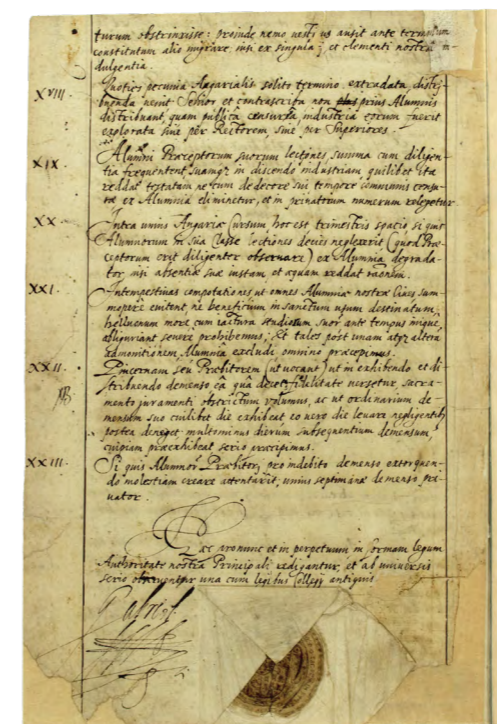 turum obstrinxisse: proinde nemo vestrũ ausit ante terminum
constitutum alio migrare nisi ex singulari et clementi nostra in-
dulgentia.
XVIII. Quoties pecunia Angarialis solito termino extradata, distri-
buenda venit Senior et contrascriba non prius Alumnis
distribuant, quam publica censura, industria eorum fuerit
explorata sive per Rectorem sive per Superiores.
XIX. Alumni Praeceptorum suorum lectiones summa cum diligen-
tia frequentent, suamq; in discendo industriam quilibet ita
reddat testatam ne cum dedecore sui tempore communis censu-
rae ex Alumnia eliminetur, et in privatorum numerum relegetur
XX. Intra unius Angariae Cursum hoc est trimestris spacio si quis
Alumnorum in sua Classe lectiones decies neglexerit (quod Prae-
ceptorum erit diligenter observare) ex Alumnia degrada-
tor, nisi absentiae suae iustam et aequam reddat rationem.
XXI. Intempestivas compotationes ut omnes Alumniae nostrae Cives sum-
mopere evitent, ne beneficium in sanctum usum destinatum,
helluonum more, cum iactura studiorum suor ante tempus
abliguriant severe prohibemus; Et tales post unam atq; alteram
admonitionem, Alumnia excludi omnino praecipimus.
XXII. Pincernam seu Praebitorem (ut vocant) ut in exhibendo et di-
NB stribuendo demenso ea qua decet fidelitate versetur, sacra-
mento juramenti obstrictum volumus, ac ut ordinarium de-
mensum suo cuilibet die exhibeat eo vero die levari negligentib,
postea deneget multominus dierum subsequentium demensum,
cuipiam praeexhibeat serio praecipimus.
XXIII. Si quis Alumnor Praebitorẽ pro indebito demenso extorquen-
do molestiam creare attentarit, unius septimanae demenso pri-
vator.
Haec pronunc et in perpetuum in formam legum
Authoritate nostra Principali redigantur, et ab universis
serio observentur una cum legibus Collegij antiquis.
Gabriel